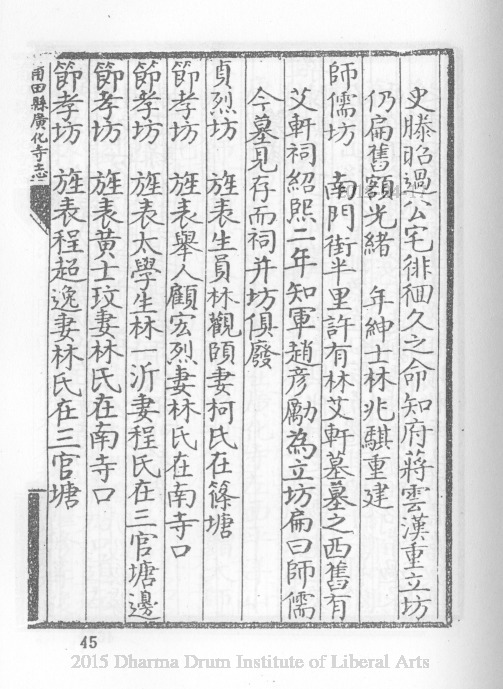 史滕昭過公宅徘徊久之命知府蔣雲漢重立坊
仍扁舊額光緒　年紳士林兆騏重建
師儒坊　南門街半里許有林艾軒墓墓之西舊有
艾軒祠紹熙二年知軍趙彥勵為立坊扁曰師儒
今墓見存而祠并坊俱廢
貞烈坊　旌表生員林觀頤妻柯氏在篠塘
節孝坊　旌表舉人顧宏烈妻林氏在南寺口
節孝坊　旌表太學生林一沂妻程氏在三官塘邊
節孝坊　旌表黃士玟妻林氏在南寺口
節孝坊　旌表程超逸妻林氏在三官塘
莆田縣廣化寺志
45
2015 Dharma Drum Institute of Liberal Arts